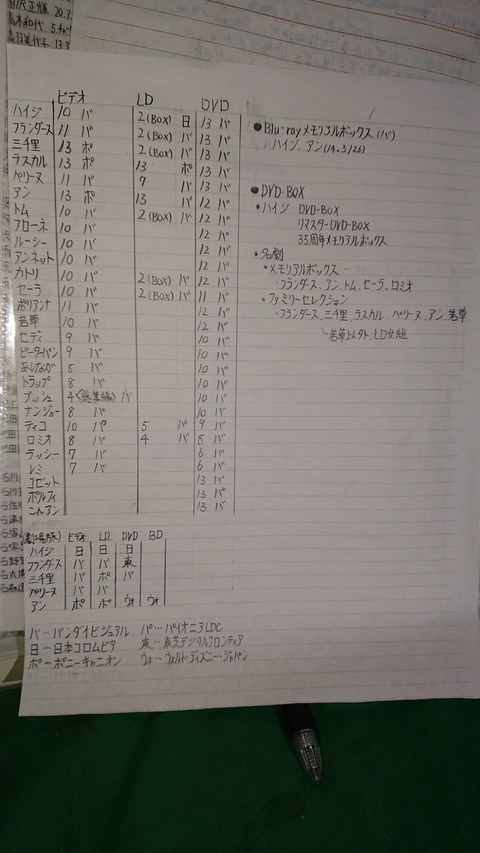 ビデオ LD DVD
ハイジ 10 バ 2(BOX) 日 13 バ
フランダース 11 バ 2(BOX) バ 13 バ
三千里 13 ポ 2(BOX) バ 13 バ
ラスカル 13 ポ 13 ポ 13 バ
ペリーヌ 11 バ 7 バ 13 バ
アン 13 ポ 13 バ 12 バ
トム 10 バ 2(BOX) バ 12 バ
フローネ 10 バ 12 バ
ルーシー 10 バ 12 バ
アンネット 10 バ 12 バ
カトリ 10 バ 2(BOX) バ 12 バ
セーラ 10 バ 2(BOX) バ 11 バ
ポリアンナ 11 バ 12 バ
若草 10 バ 12 バ
セディ 9 バ 10 バ
ピーターパン 9 バ 10 バ
あしなが 8 バ 10 バ
トラップ 8 バ 10 バ
ブッシュ 4〈総集編〉バ 10 バ
ナンジョー 8 バ 10 バ
ティコ 10 パ 5 バ 9 バ
ロミオ 8 バ 4 バ 8 バ
ラッシー 7 バ 6 バ
レミ 7 バ 6 バ
コゼット 13 バ
ポルフィ 13 バ
こんアン 13 バ
ビデオ LD DVD BD
ハイジ 日 日 日
フランダース バ バ 東
三千里 バ ポ バ
ペリーヌ バ バ
アン ポ ポ ウォ ウォ
バ…バンダイビジュアル パ…パイオニアLDC
日…日本コロムビア 東…東芝デジタルフロンティア
ポ…ポニーキャニオン ウォ…ウォルト・ディズニー・ジャパン
●Blu-rayメモリアルボックス(バ)
ハイジ、アン(14.3/26)
●DVD-BOX
・ハイジ DVD-BOX
リマスターDVD-BOX
35周年メモリアルボックス
・名劇
・メモリアルボックス
・フランダース、アン、トム、セーラ、ロミオ
・ファミリーセレクション
・フランダース、三千里、ラスカル、ペリーヌ、アン、若草